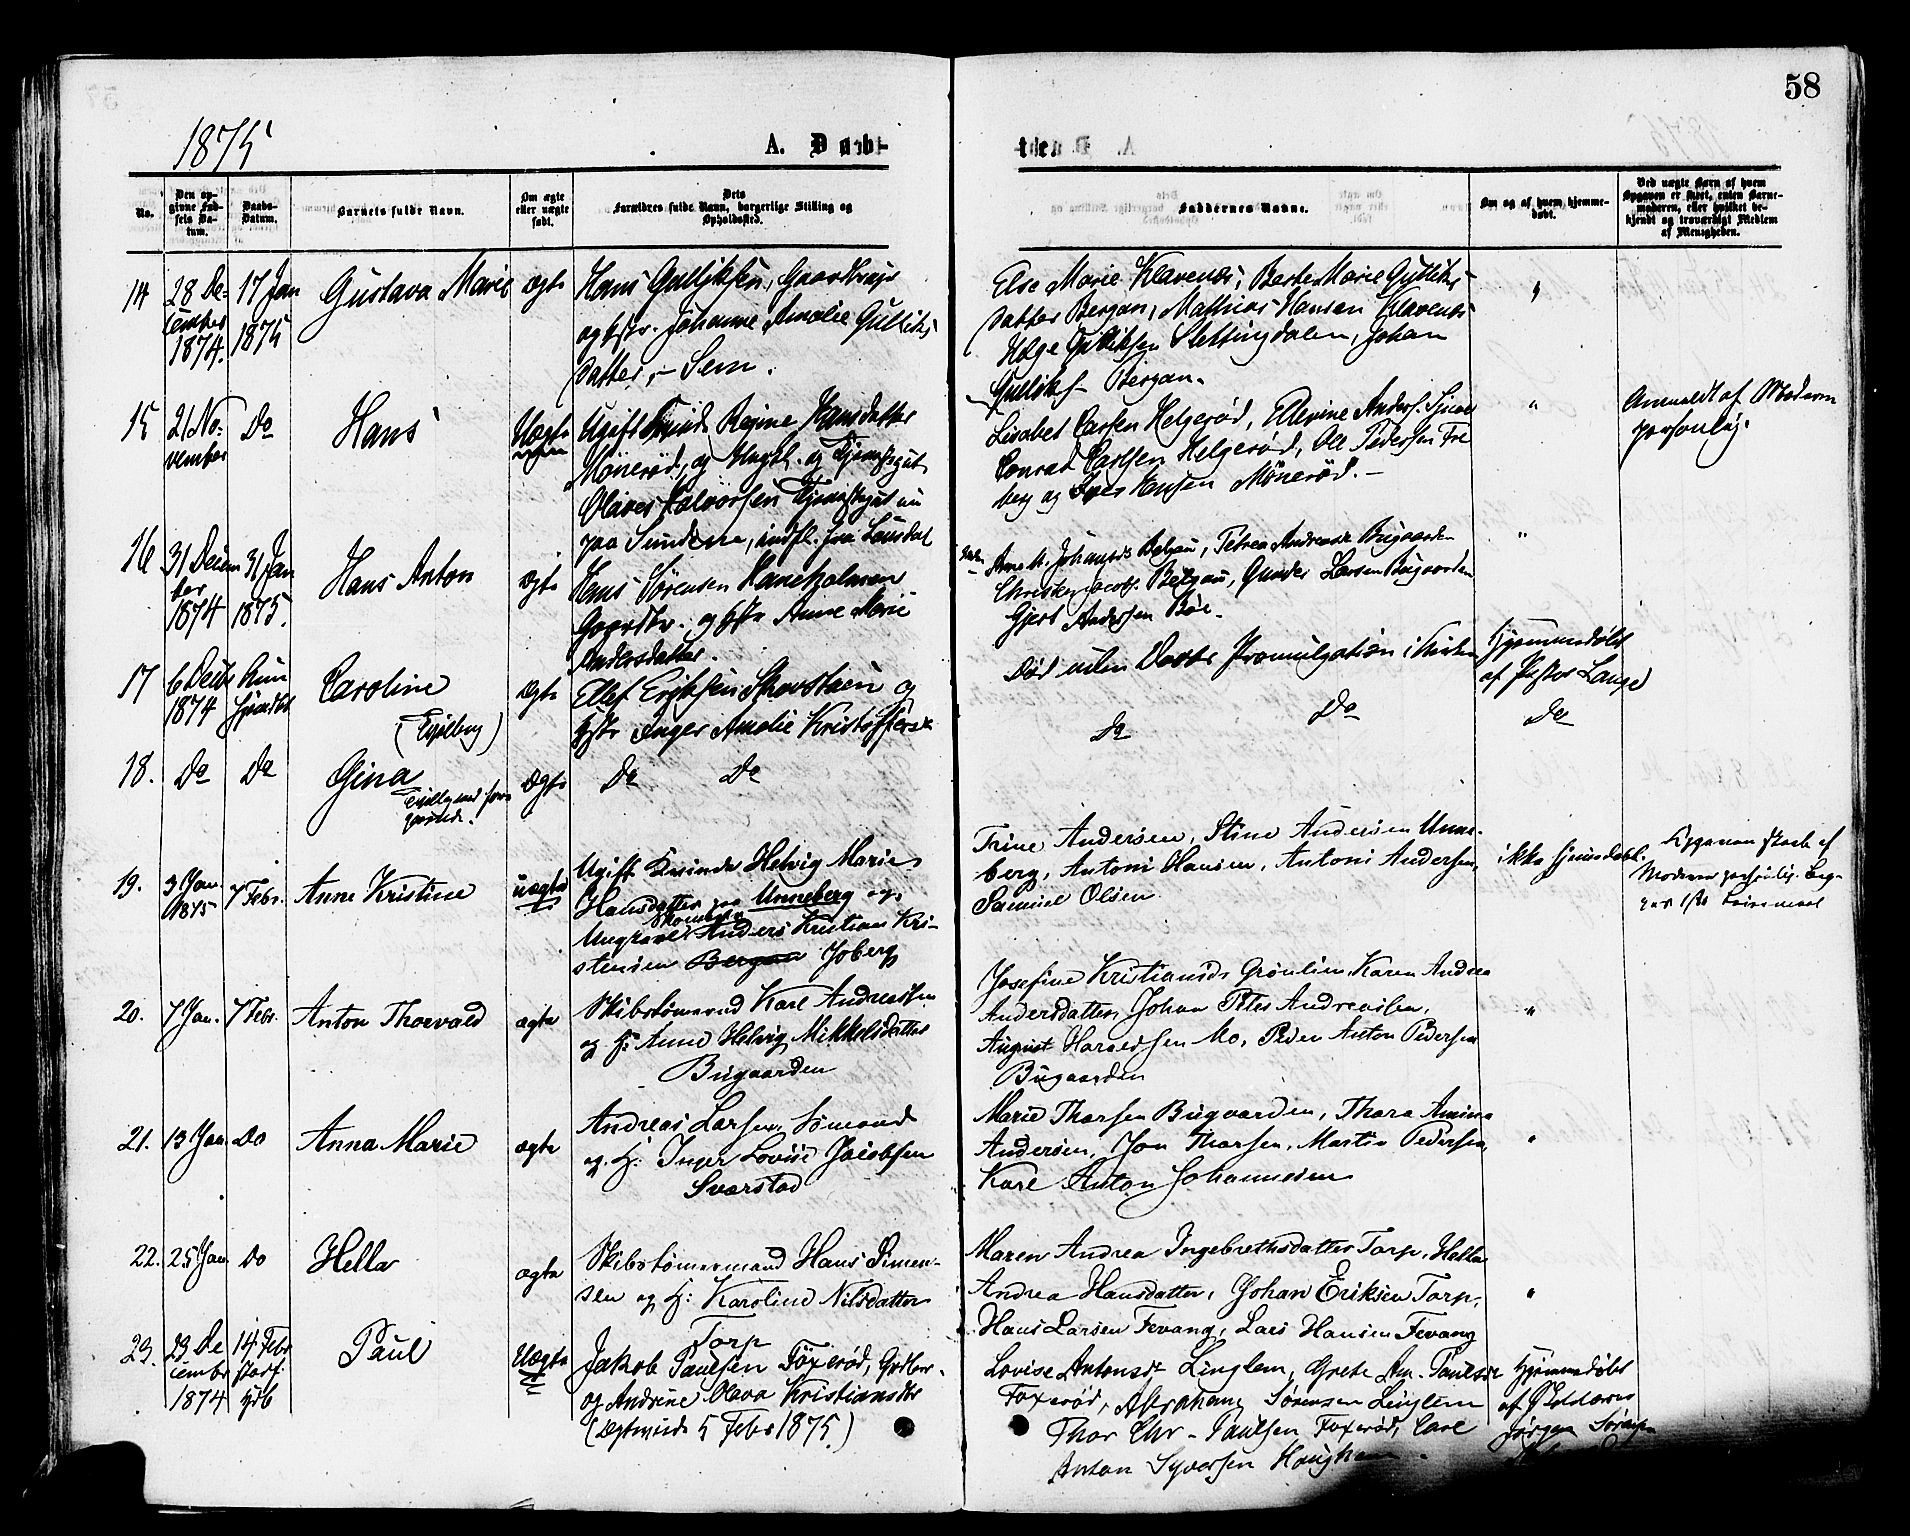 58
1875
A. Døbte
No.
Den opgivne Fødsels Datum.
Daabs-Datum.
Barnets fulde Navn.
Om ægte eller uægte født.
Dets Forældres fulde Navn, borgerlige Stilling og Opholdssted.
Faddernes Navne.
Om og af hvem hjemmedøbt.
Ved uægte Børn af hvem Opgaven er skeet, enten Barnemoderen, eller hvilket bekjendt og troværdigt Medlem af Menigheden.
14 28 December 1874. 17 Jan 1875 Gustava Marie ægte
Hans Gulliksen, Gaardbruger
og Hstr. Johanne Amalie Gulliks
datter, - Sem.
Else Marie Klavenæs, Berte Marie Gulliks
datter Bergan, Mathias Hansen Klavenæs
Helge Gulliksen Slettingdalen, Johan
Gulliks Bergan.
15 21 November Do Hans Uægte
Ugift Kvinde Regine Hansdatter
Mønerød, og Ungk. og Tjenestgut
Olaves Halvorsen Tjenestgut nu
paa Sundene, indfl. fra Laurdal
Lisabet Carlsen Helgerød, Ellevine Anders.
Conrad Carlsen Helgerød, Ole Pedersen Fre
berg og Iver Hansen Mønerød. -
Anmeldt af Moderen
personlig.
16 31 December 1874 31 Jan 1875. Hans Anton ægte
Hans Sørensen Haneholmen
Gaardbr. og Hstr Anne Marie
Andersdatter.
Anne M. Johannesd Bergan, Petrea Andreasd Bugaarden
Christen Jacobs. Bergan, Gunder Larsen Bugaarden
Gjert Andersen Bøe.
17 6 Decbr 1874 Caroline (Tvilling) ægte
Ellef Eriksen Skovstuen og
Hstr Inger Amalie Kristoffersd
Død uden Daabs Promulgation i Kirken
Hjemmedøbt
af Pastor Lange
18. Do Do Gina ægte
Do Do
Do Do
Do
19. 3 Jan 1875 7 Febr. Anne Kristine uægte
Ugift Kvinde Helvig Marie
Hansdatter paa Unneberg og
Ungkarl Anders Kristian Kri-
stensen Bergan Joberg
Trine Andersen, Stine Andersen Unne-
berg, Antoni Hansen, Antoni Andersen,
Samuel Olsen
ikke hjemdøbt.
Opgaven skeet af
Moderen personlig.
20. 7 Jan. 7 Febr. Anton Thorvald ægte
Skibstømmermd Karl Andreassen
og H: Anne Helvig Mikkelsdatter
Bugaarden
Josefine Kristiansd. Grønlien, Karen Andrea
Andersdatter, Johan Peter Andreassen,
August Haraldsen Mo, Peder Anton Pedersen
Bugaarden
21. 13 Jan. Do Anna Marie ægte
Andreas Larsen, Sømand
og H: Inger Lovise Jacobsen
Sværstad
Marie Thorsen Bugaarden, Thora Amina
Andersen, Jon Thorsen, Martin Pedersen,
Karl Anton Johannesen
22. 25 Jan Do Hella ægte
Skibstømmermand Hans Simen-
sen og H: Karoline Nilsdatter
Torp
Maren Andrea Ingebrethsdatter Torp, Hella
Andrea Hansdatter, Johan Eriksen Torp,
Hans Larsen Fevang, Lars Hansen Fevang
23. 23 December 1874 14 Febr Paul Uægte
Jakob Paulsen Foxerød, Grdbr.
og Andrine Olava Kristiansdr
(Ægteviede 5 Febr 1875.)
Lovise Antonsd Linglem, Grete An. Paulsdr
Foxerød, Abraham Sørensen Linglem
Thor Chr. Paulsen Foxerød, Carl
Anton Syversen Haughem.
Hjemmedøbt
af
Jørgen Sørensen